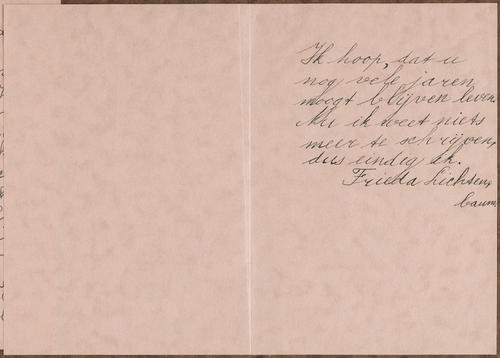 Ik hoop, dat u
nog vele jaren
moogt blijven leven.
Nu ik weet niets
meer te schrijven,
dus eindig ik.
Frieda Lichten,
baum.